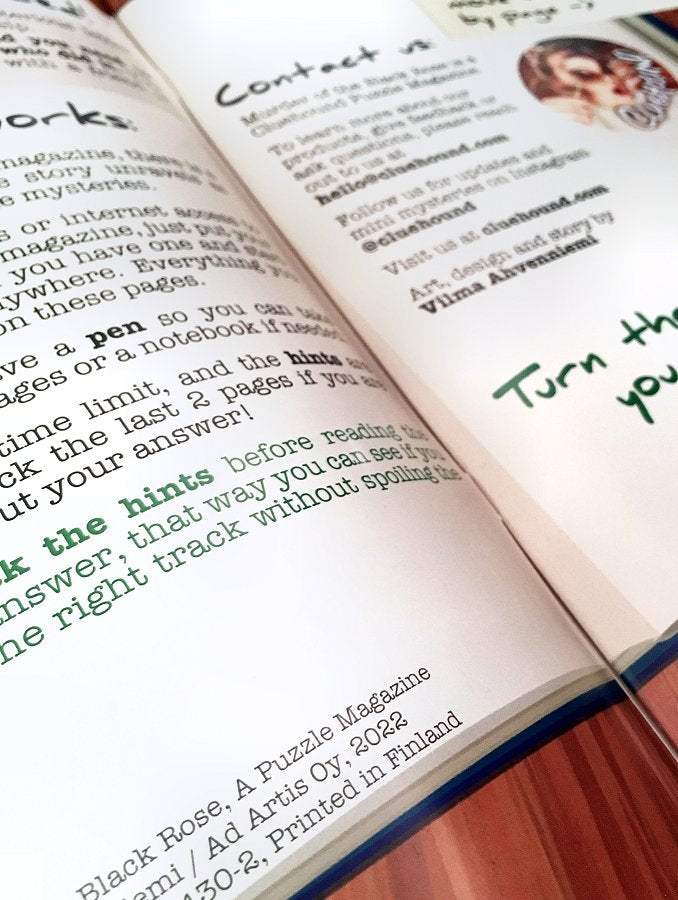 who did
with a
works:
magazine, there is
story unravels
e mysteries.
s or internet access to
magazine, just put your
you have one and start
ywhere. Everything you
on these pages.
ve a pen so you can take
ages or a notebook if needed
time limit, and the hints are
ck the last 2 pages if you are
ut your answer!
k the hints before reading the
answer, that way you can see if you
ne right track without spoiling the
Black Rose, A Puzzle Magazine
emi / Ad Artis Oy, 2022
130-2, Printed in Finland
by page
Contact us:
Murder of the Black Rose is a
Cluehound Puzzle Magazine.
To learn more about our
products, give feedback or
ask questions, please reach
out to us at
hello@cluehound.com
Follow us for updates and
mini mysteries on Instagram
@cluehound
Visit us at cluehound.com
Art, design and story by
Vilma Ahvenniemi
Cluehound
Turn the
you